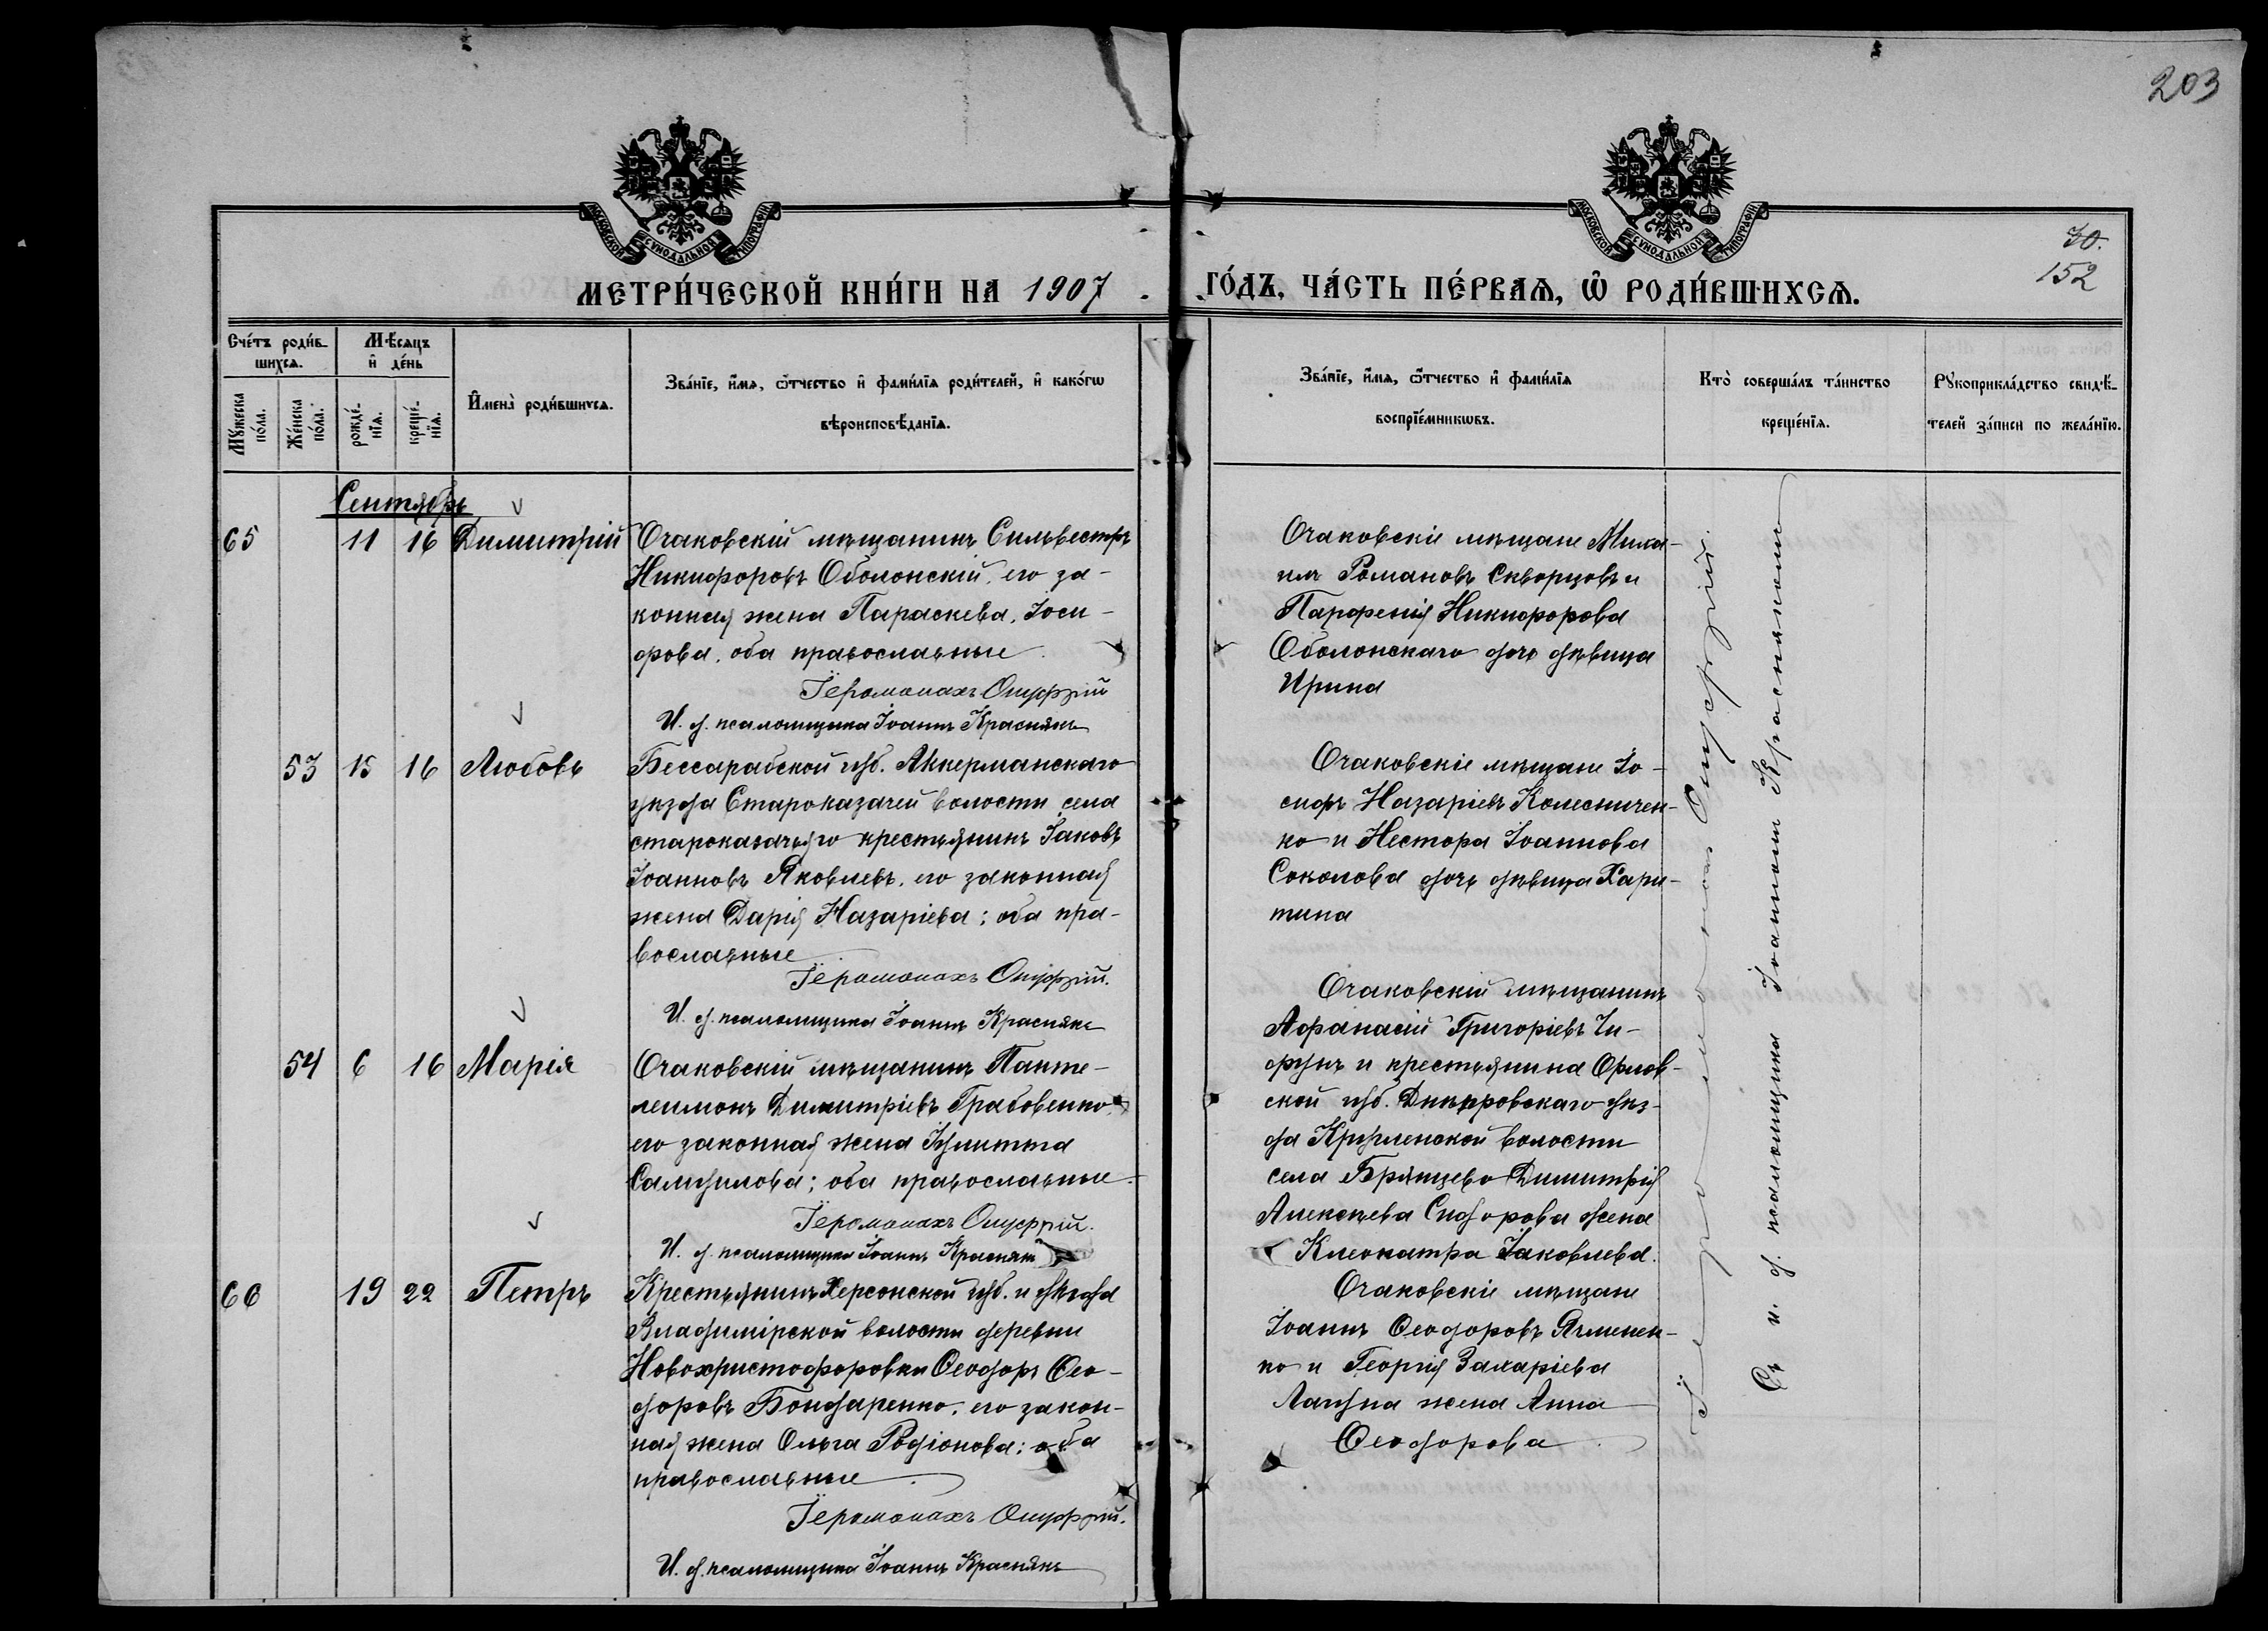 203
МОСКОВСКОЙ СѴНОДАЛЬНОЙ ТИПОГРАФІИ
МОСКОВСКОЙ СѴНОДАЛЬНОЙ ТИПОГРАФІИ
30.
152
МЕТРИ́ЧЕСКОЙ КНИ́ГИ НА 1907 ГО́ДЪ, ЧА́СТЬ ПЕ́РВАѦ, Ѡ҆ РОДИ́ВШИХСѦ.
Сче́тъ роди́в-
шихсѧ.
Мѣ́сяцъ
и҆ де́нь
Мꙋ́жеска
по́ла.
Же́нска
по́ла.
рожде́-
нїѧ.
креще́-
нїѧ.
И҆мена̀ роди́вшихсѧ.
Зва́нїе, и҆́мѧ, ѻ҆́тчество и҆ фами́лїѧ роди́телей, и҆ како́гѡ
вѣроисповѣ́данїѧ.
Зва́нїе, и҆́мѧ, ѻ҆́тчество и҆ фами́лїѧ
воспрїе́мникѡвъ.
Кто̀ соверша́лъ та́инство
креще́нїѧ.
Рꙋкоприкла́дство свидѣ́-
телей за́писи по жела́нїю.
Сентябрь
65 11 16 Димитрій
Очаковскій мѣщанинъ Сильвестръ
Никифоровъ Оболонскій, его за-
конная жена Параскева, Іоси-
фова, оба православные
Іеромонахъ Онуфрій
И. д. псаломщика Іоаннъ Краснякъ
Очаковскіе мѣщане Миха-
илъ Романовъ Скворцовъ и
Парфенія Никифорова
Оболонскаго дочь дѣвица
Ирина
53 15 16 Любовь
Бессарабской губ. Аккерманскаго
уѣзда Староказачей волости села
староказачьяго крестьянинъ Іаковъ
Іоанновъ Яковлевъ, его законная
жена Дарія Назаріева; оба пра-
вославные
Іеромонахъ Онуфрій.
И. д. псаломщика Іоаннъ Краснякъ
Очаковскіе мѣщане Іо-
сифъ Назаріевъ Колесничен-
ко и Нестора Іоаннова
Соколова дочь дѣвица Хари-
тина
54 6 16 Марія
Очаковскій мѣщанинъ Панте-
леимонъ Димитріевъ Грабовенко,
его законная жена Іулитта
Самуилова; оба православные
Іеромонахъ Онуфрій.
И. д. псаломщика Іоаннъ Краснякъ
Очаковскій мѣщанинъ
Афанасій Григоріевъ Чи-
фунъ и крестьянина Орлов-
ской губ. Днѣпровскаго уѣз-
да волости
села Брянцево Димитрія
Алексѣева Сидорова жена
Клеопатра Іаковлева.
66 19 22 Петръ
Крестьянинъ Херсонской губ. и уѣзда
Владимірской волости деревни
Новохристофоровки Ѳеодоръ Ѳео-
доровъ Бондаренко, его закон-
ная жена Ольга Родіонова; оба
православные
Іеромонахъ Онуфрій.
И. д. псаломщика Іоаннъ Краснякъ
Очаковскіе мѣщане
Іоаннъ Ѳеодоровъ Ячменен-
ко и Георгія Захаріева
Лагуна жена Анна
Ѳеодорова
Іеромонахъ Онуфрій.
Съ и. д. псаломщика Іоанномъ Краснякомъ